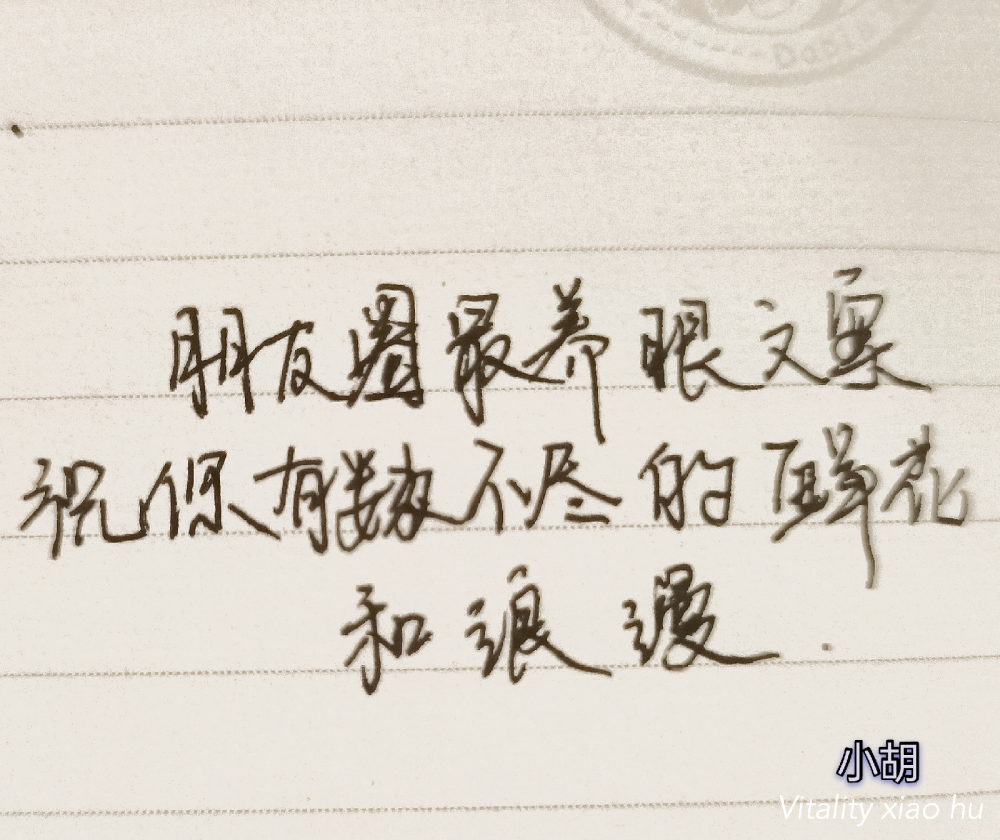 Dapla
朋友圈最养眼文案
祝你有数不尽的鲜花
和浪漫.
小胡
Vitality xiao hu